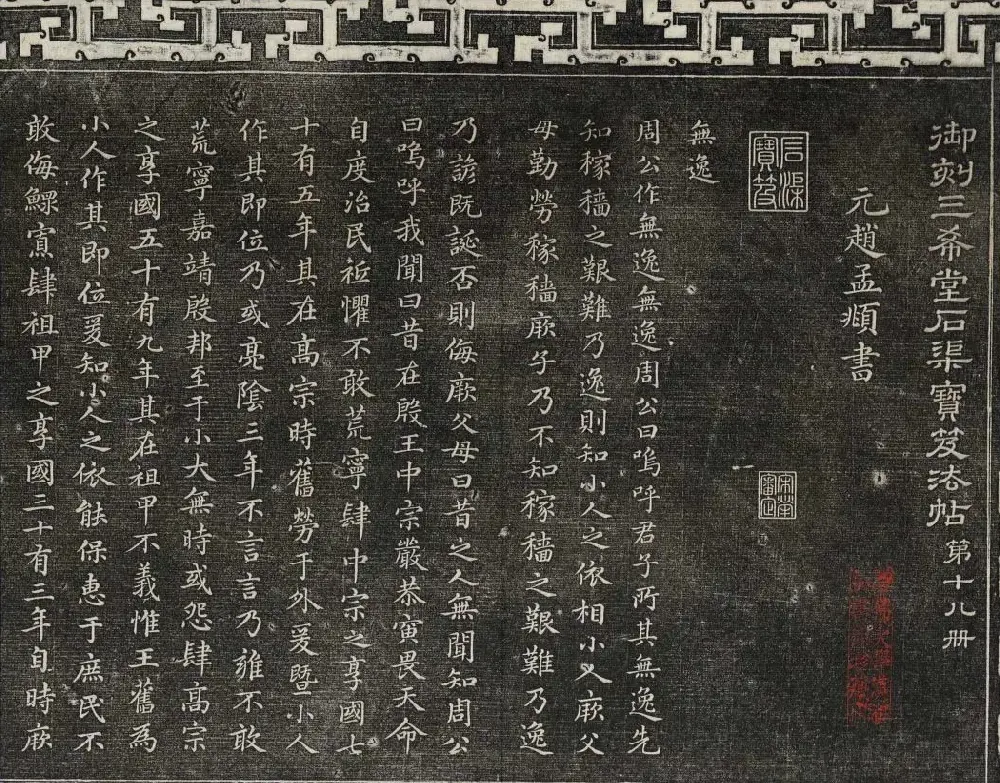 御刻三希堂石渠寶笈法帖 第十八册
元趙孟頫書
石渠寶笈
宋犖審定
無逸
周公作無逸無逸周公曰嗚呼君子所其無逸先
知稼穡之艱難乃逸則知小人之依相小人厥父
母勤勞稼穡厥子乃不知稼穡之艱難乃逸
乃諺既誕否則侮厥父母曰昔之人無聞知周公
曰嗚呼我聞曰昔在殷王中宗嚴恭寅畏天命
自度治民祗懼不敢荒寧肆中宗之享國七
十有五年其在高宗時舊勞于外爰暨小人
作其即位乃或亮陰三年不言言乃雍不敢
荒寧嘉靖殷邦至于小大無時或怨肆高宗
之享國五十有九年其在祖甲不義惟王舊為
小人作其即位爰知小人之依能保惠于庶民不
敢侮鰥寡肆祖甲之享國三十有三年自時厥